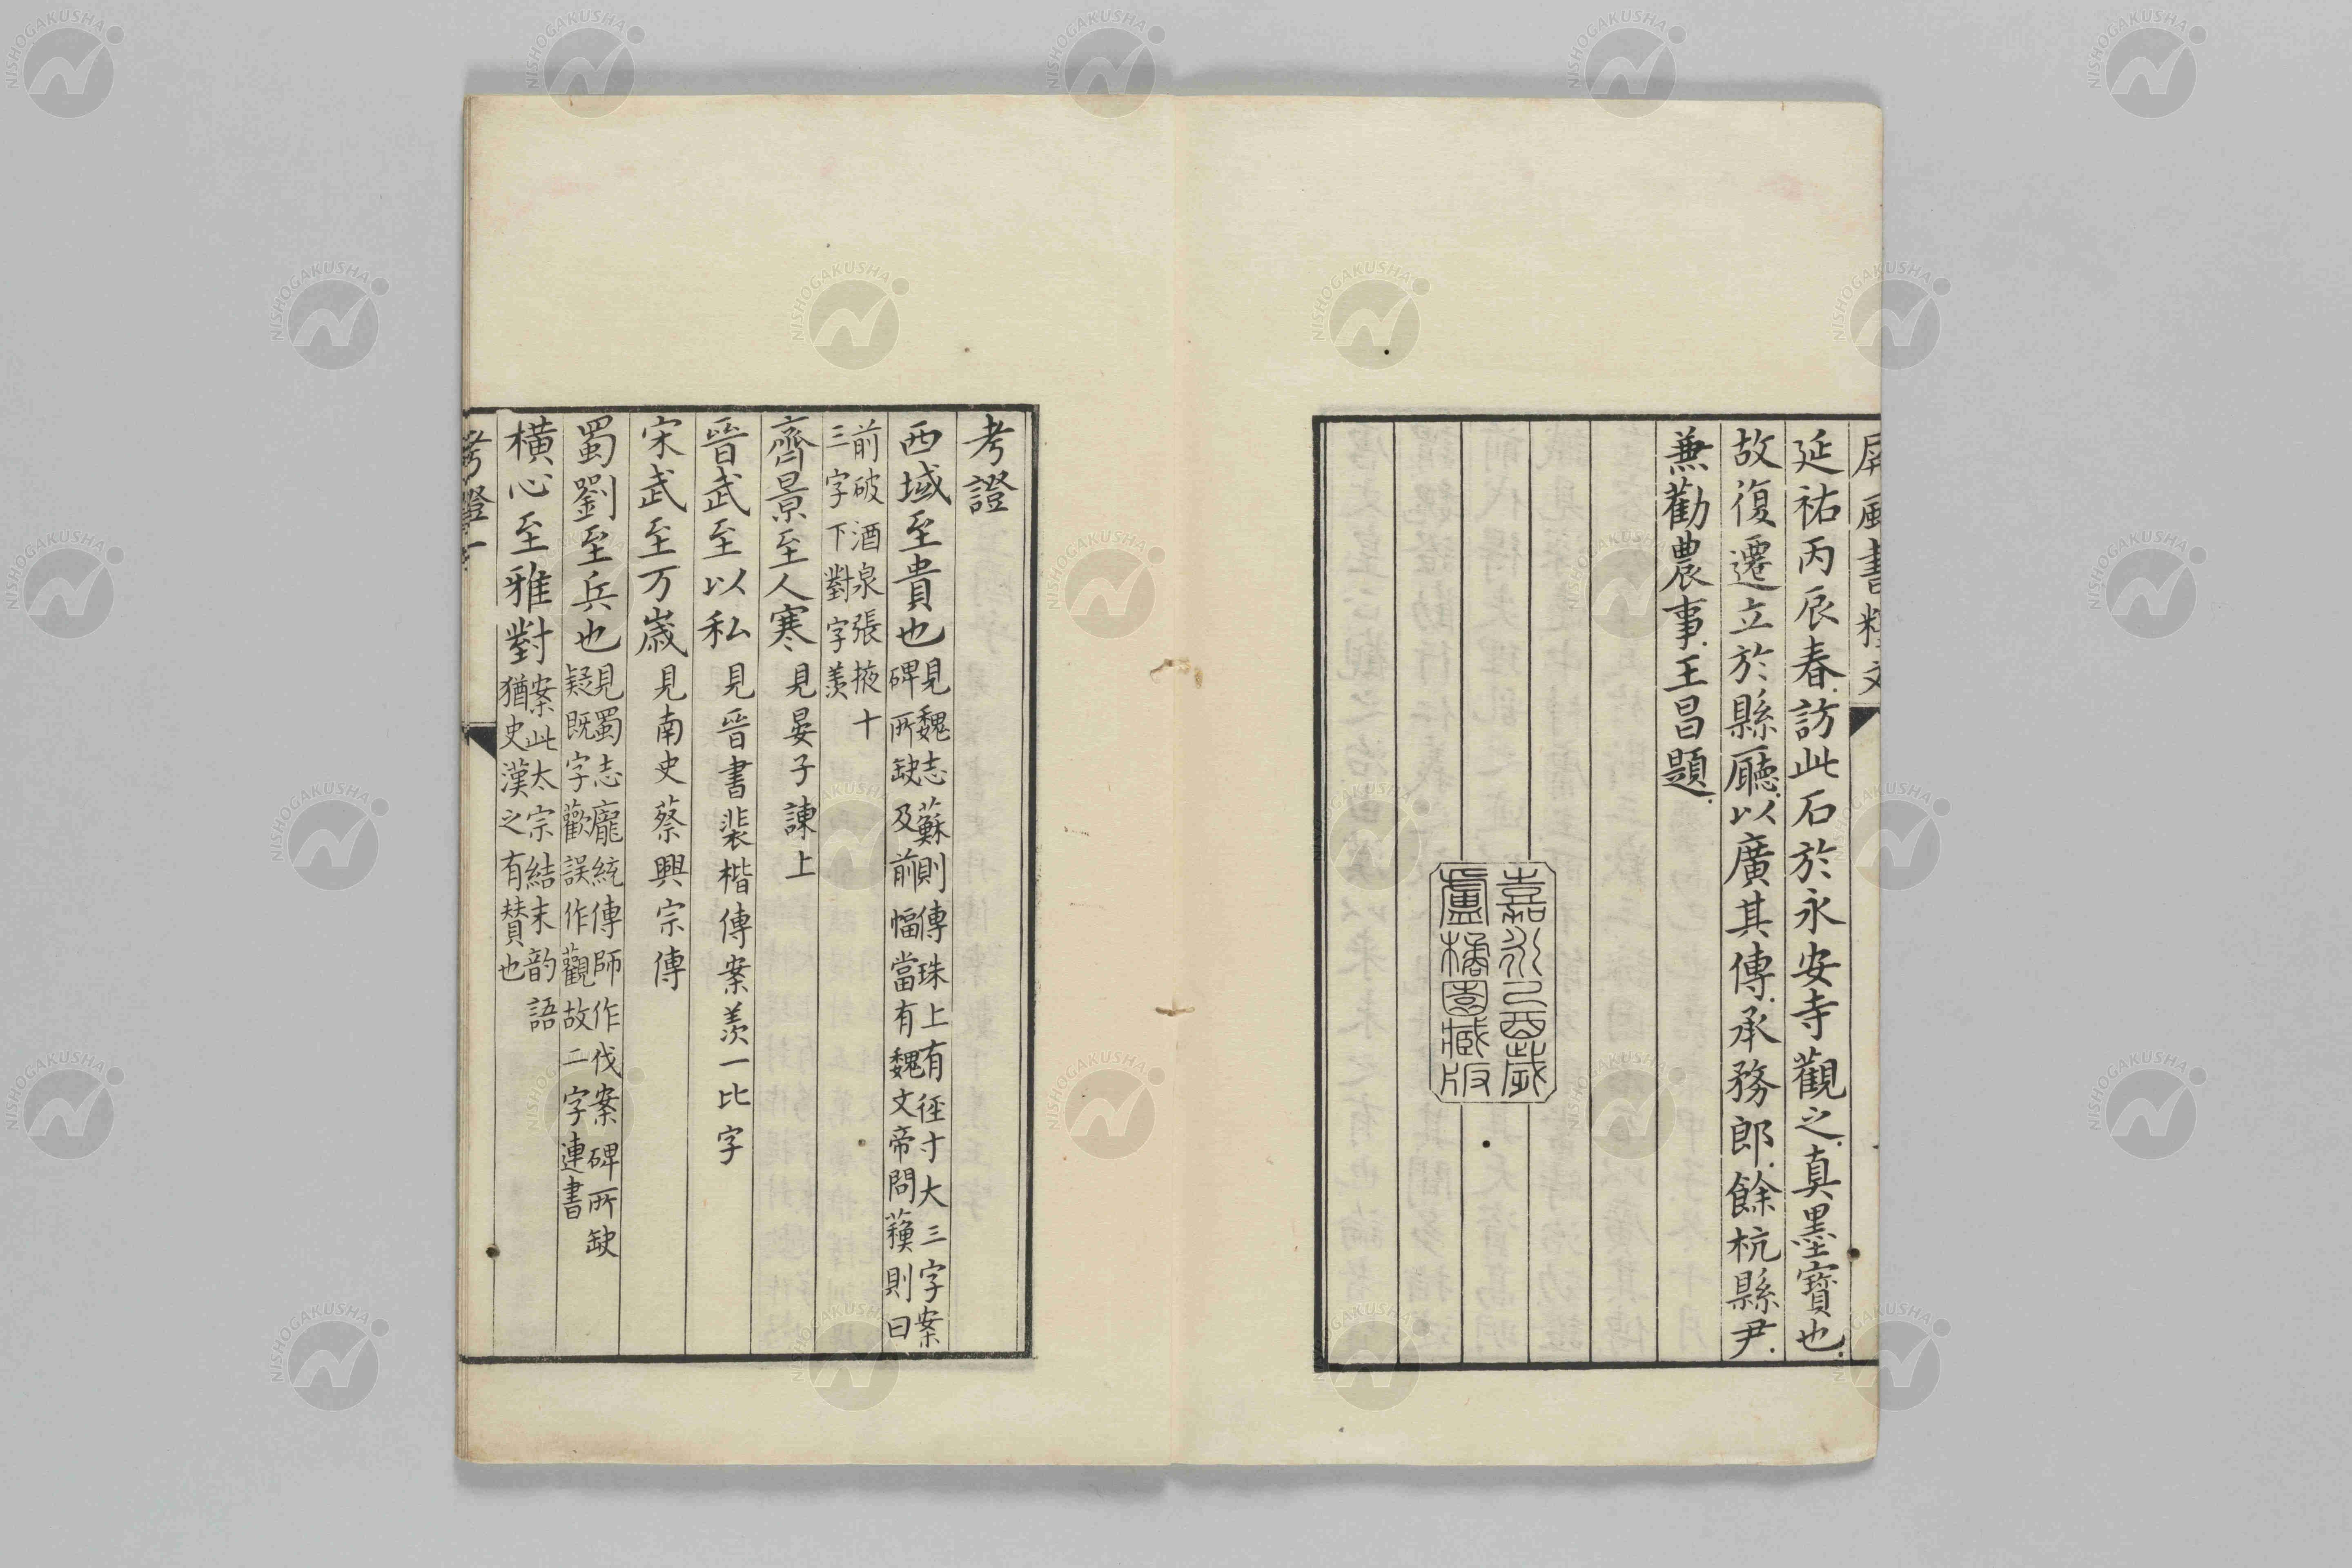 屏風書釋文
延祐丙辰春訪此石於永安寺觀之真墨寶也
故復遷立於縣廳以廣其傳承務郎餘杭縣尹
兼勸農事王昌題
嘉永己酉歲
盧橘園藏版
考證
西域至貴也見魏志蘇則傳珠上有徑寸大三字案
碑所缺及前幅當有魏文帝問蘓則曰
前破酒泉張掖十
三字下對字羨
齊景至人寒見晏子諫上
晉武至以私見晉書裴楷傳案羨一比字
宋武至万歲見南史蔡興宗傳
蜀劉至兵也見蜀志龐統傳師作伐案碑所缺
疑既字歡誤作觀故二字連書
橫心至雅對案此太宗結末韵語
猶史漢之有賛也
考證一
NISHOGAKUSHA